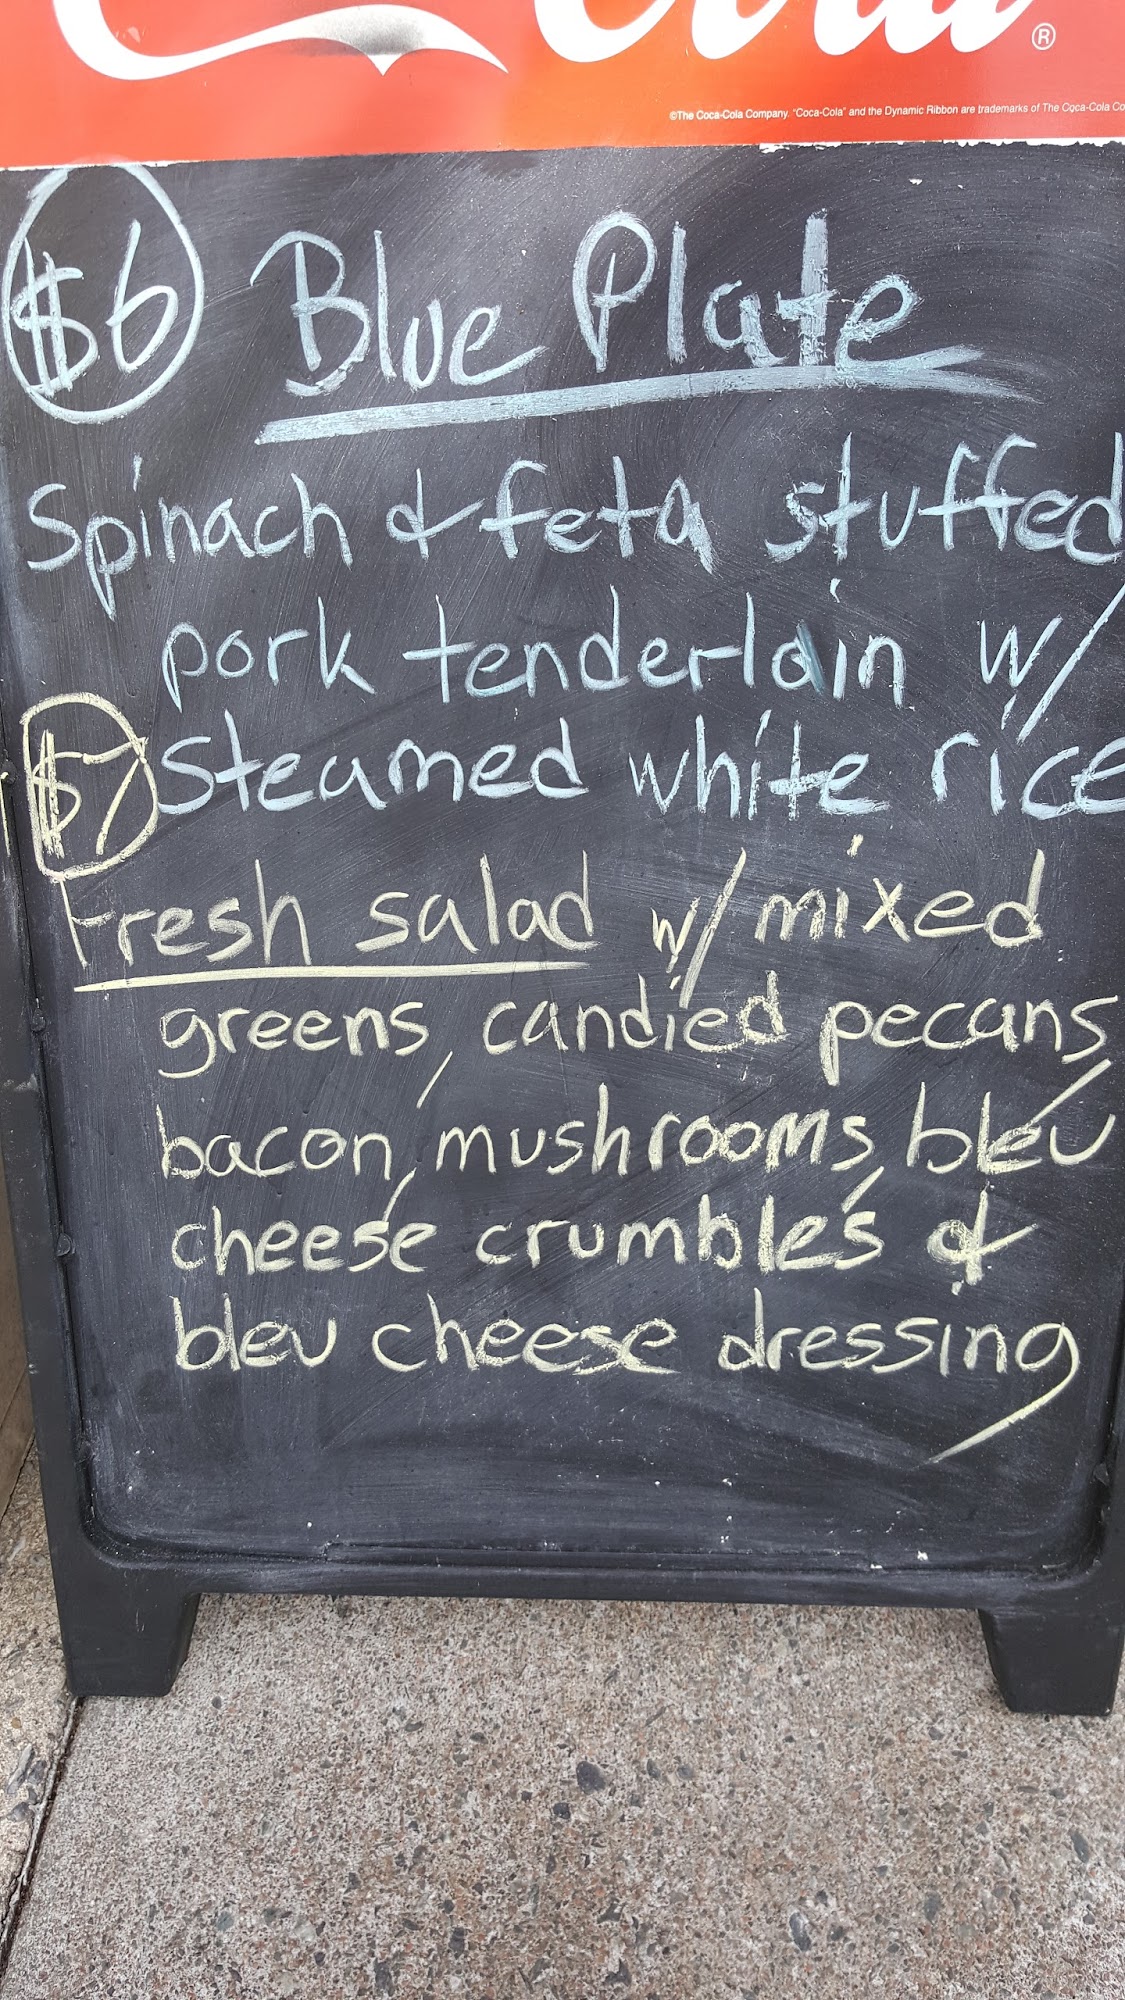 Cola ®
©The Coca-Cola Company. "Coca-Cola" and the Dynamic Ribbon are trademarks of The Coca-Cola Co
$6 Blue Plate
Spinach & feta stuffed
pork tenderloin w/
$7 steamed white rice
Fresh salad w/ mixed
greens, candied pecans,
bacon, mushrooms, bleu
cheese crumbles &
bleu cheese dressing